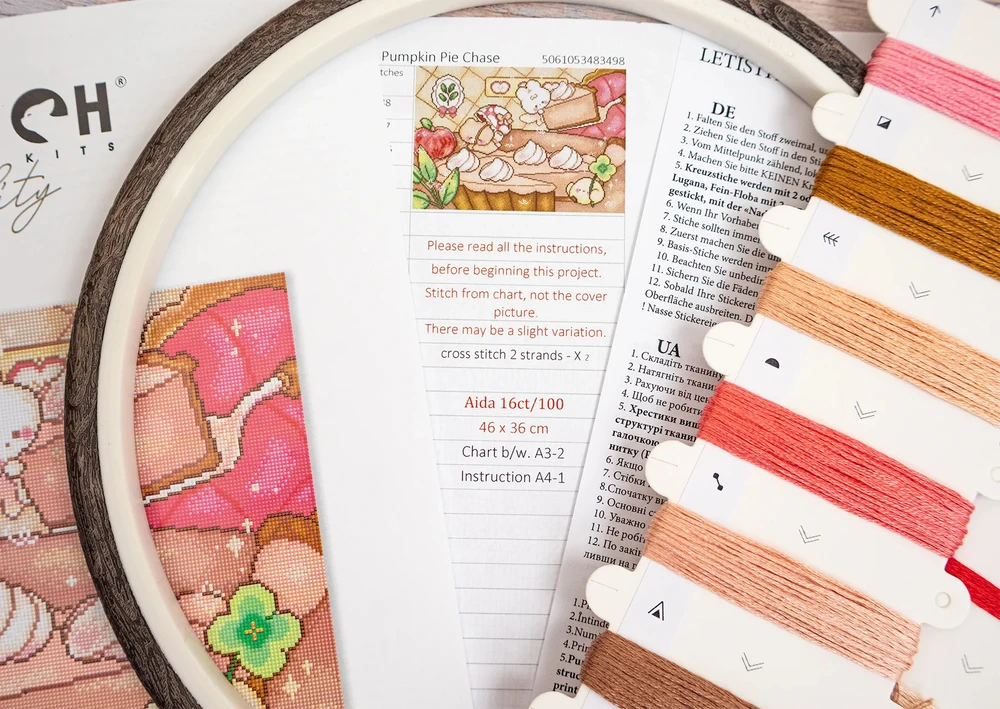 CH®
KITS
ity
Pumpkin Pie Chase 5061053483498
tches
Please read all the instructions,
before beginning this project.
Stitch from chart, not the cover
picture.
There may be a slight variation.
cross stitch 2 strands - X 2
Aida 16ct/100
46 x 36 cm
Chart b/w. A3-2
Instruction A4-1
LETIST
DE
1. Falten Sie den Stoff zweimal,
2. Ziehen Sie den Stoff in den
3. Vom Mittelpunkt zählend,
4. Machen Sie bitte KEINEN
5. Kreuzstiche werden mit 2
Lugana, Fein-Floba mit 2
gestickt, mit der
6. Wenn Ihr Vorhaben
7. Stiche sollten immer
8. Zuerst machen Sie die
9. Basis-Stiche werden
10. Beachten Sie
11. Sichern Sie die Fäden
12. Sobald Ihre Stickerei
Oberfläche ausbreiten.
! Nasse
UA
1. Складіть тканину
2. Натягніть тканину
3. Рахуючи від
4. Щоб не робити
5. Хрестики
структурі
галочкою
нитку
6. Якщо
7. Стібки
8.Спочатку
9. Основні
10. Уважно
11. Не
12. По
ливши на
2.Întinde
3.Num
4.Prin
5.Pu
struc
print